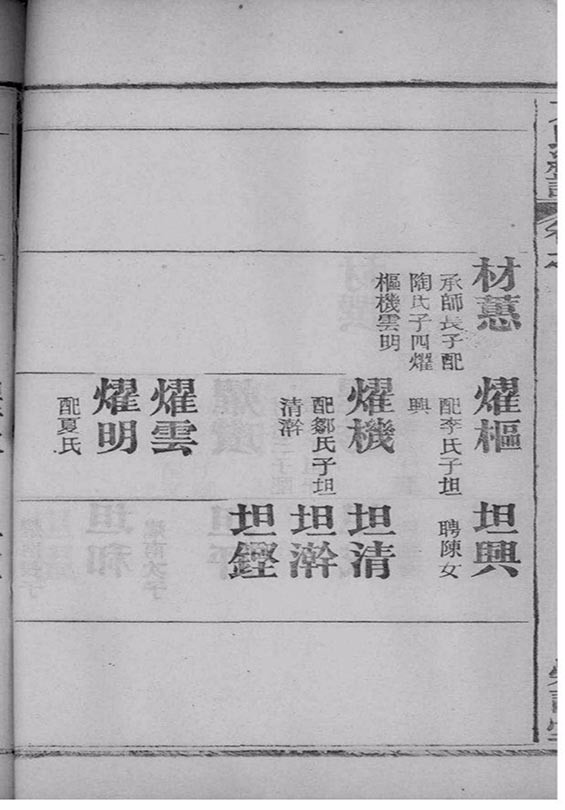 材蕙
承師長子配
陶氏子四燿
樞機雲明
燿樞
配李氏子坦
興
燿機
配鄒氏子坦
清澣
燿雲
燿明
配夏氏
坦興
聘陳女
坦清
坦澣
坦鏗